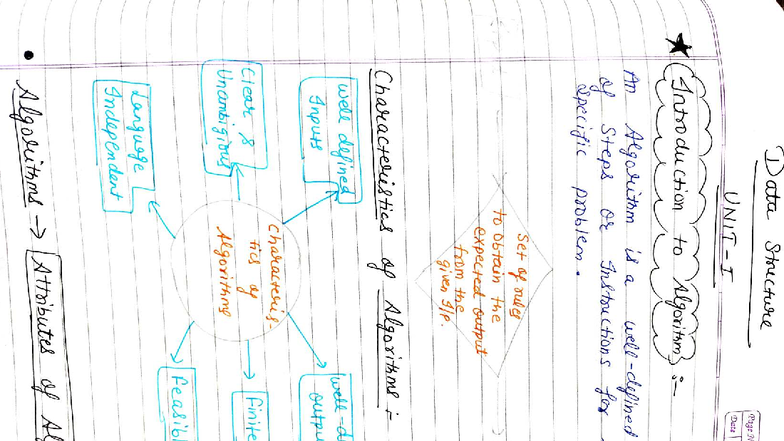 Data Structure
UNIT-I
Introduction to Algorithm :-
An Algorithm is a well-defined
of Steps or Instructions for
specific problem.
Set of rules
to obtain the
expected output
from the
given I/P.
Characteristics of Algorithms :-
well defined
Inputs
Clear &
Unambigious
Language
Independent
Characteris-
tics of
Algorithms
well-d
outpu
Finite
Feasibl
Algorithms → Attributes of Al
Page
Date